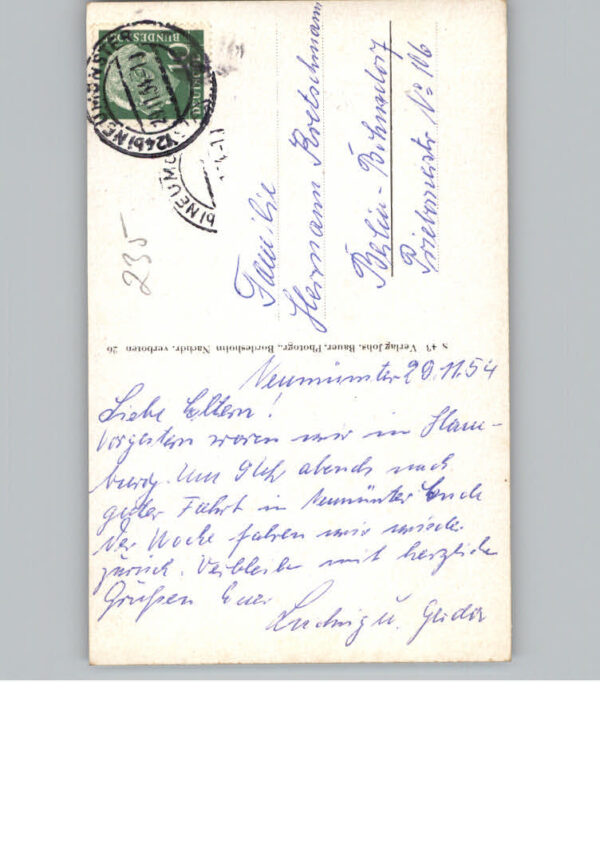 Neumünster 29.11.54
Liebe Eltern!
Vorgestern waren wir in Ham-
burg. Um 9 Uhr abends nach
guter Fahrt in Neumünter Ende
der Woche fahren wir wieder
zurück. Verbleibe mit herzlichen
Grüßen Euer
Ludwig u. Gerda
Familie
Hermann Kretschmann
Berlin-Bohnsdorf
No 106
S 43 Verlag Johs. Bauer, Photogr., Bordesholm Nachdr. verboten 26
235
NEUMÜNSTER
BUNDESPOST